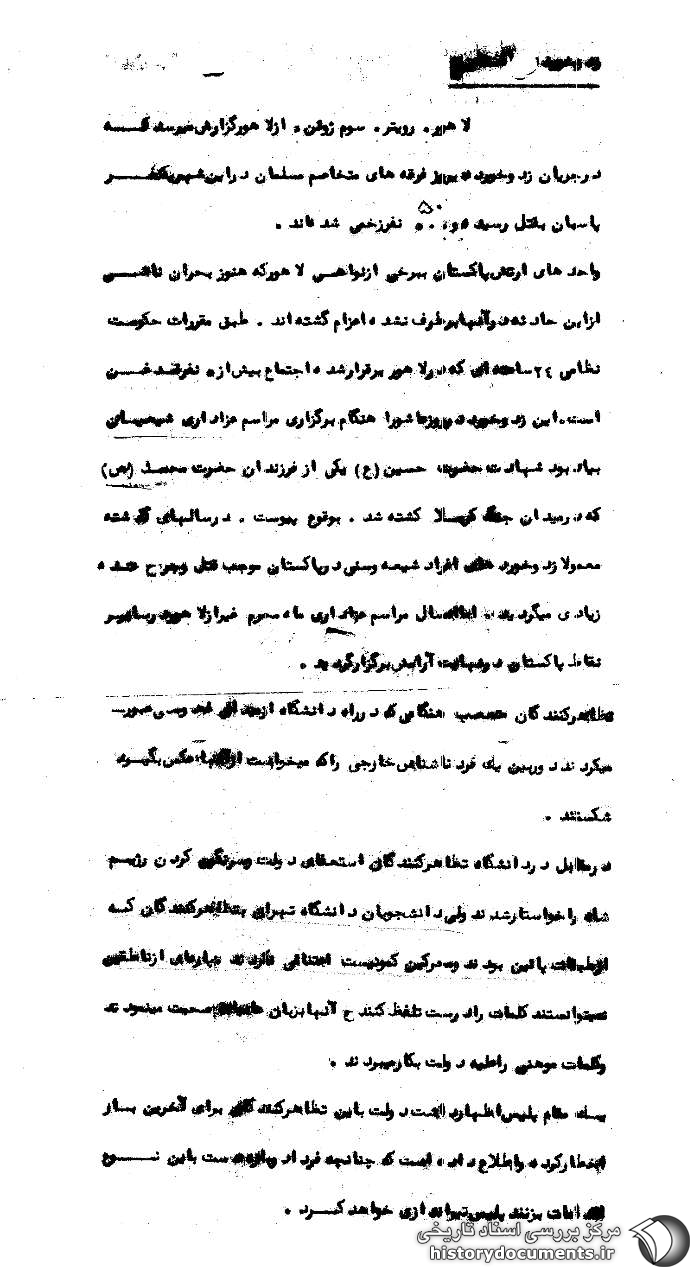 لاهور. رویتر. سوم ژوئن. ازلاهورگزارش میرسد که
درجریان زد وخورد دیروز فرقه های متخاصم مسلمان دراین شهر یکنفر
پاسبان بقتل رسیده و ۵۰ نفرزخمی شده اند .
واحد های ارتش پاکستان ببرخی ازنواحی لاهورکه هنوز بحران ناشی
ازاین حادثه در آنها برطرف نشده اعزام گشته اند . طبق مقررات حکومت
نظامی ۲٤ ساعته ای که در لاهور برقرارشده اجتماع بیش از ۵ نفرقدغن
است.این زد وخورد در روزعاشورا هنگام برگزاری مراسم عزاداری شیعیان
بیاد بود شهادت حضرت حسین (ع) یکی از فرزندان حضرت محمد (ص)
که درمیدان جنگ کربلا کشته شد . بوقوع پیوست . درسالهای گذشته
معمولا زد وخورد های افراد شیعه وسنی درپاکستان موجب قتل وجرح عده
زیادی میگردید . امسال مراسم عزاداری ماه محرم غیرازلاهور درسایر
نقاط پاکستان درنهایت آرامش برگزارگردید .
تظاهرکنندگان متعصب هنگامی که درراه دانشگاه ازمیدان فردوسی عبور
میکردند دوربین یک فرد ناشناس خارجی راکه میخواست ازآنها عکس بگیرد
شکستند .
درمقابل در دانشگاه تظاهرکنندگان استعفای دولت وسرنگون کردن رژیم
شاه را خواستارشدند ولی دانشجویان دانشگاه تهران بتظاهرکنندگان که
ازطبقات پائین بودند وسرکین کمونیست اعتنائی نکردند عبارهای ازناطقین
نمیتوانستند کلمات رادرست تلفظ کنند آنها بزبان صحبت مینمودند
وکلمات موهنی راعلیه دولت بکارمیبردند .
یک مقام پلیس اظهارداشت دولت باین تظاهرکنندگان برای آخرین بار
اخطارکرده واطلاع داده است که چنانچه فردا دست باین نوع
اقدامات بزنند پلیس تیراندازی خواهد کرد .
مرکز بررسی اسناد تاریخی
historydocuments.ir